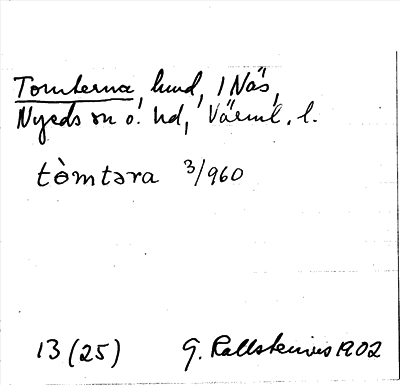 Tomterna, lund, 1 Näs,
Nyeds sn o. hd, Värml. l.
tòmtəra 3/960
13 (25) G. Kallstenius 1902